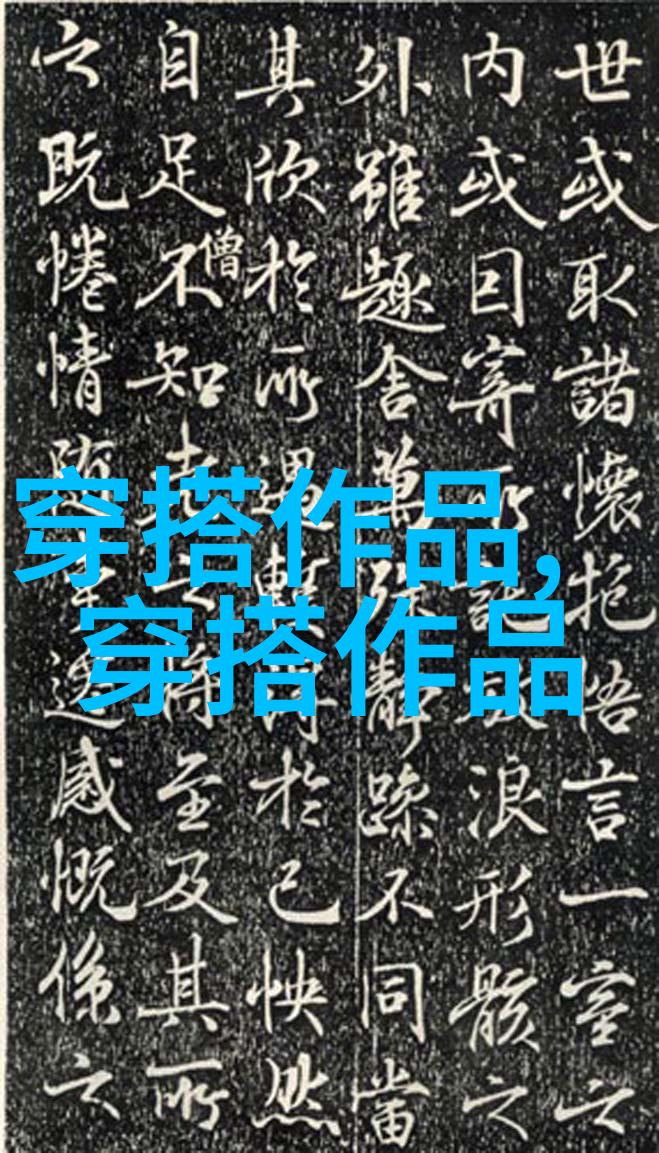 世或取諸懷抱悟言一室之
内或因寄所託放浪形骸之
外雖趣舍萬殊靜躁不同當
其欣於所遇暫得於己怏然
自足不知老之將至及其所
僧
之既惓情随事遷感慨係之
穿搭作品,
穿搭作品